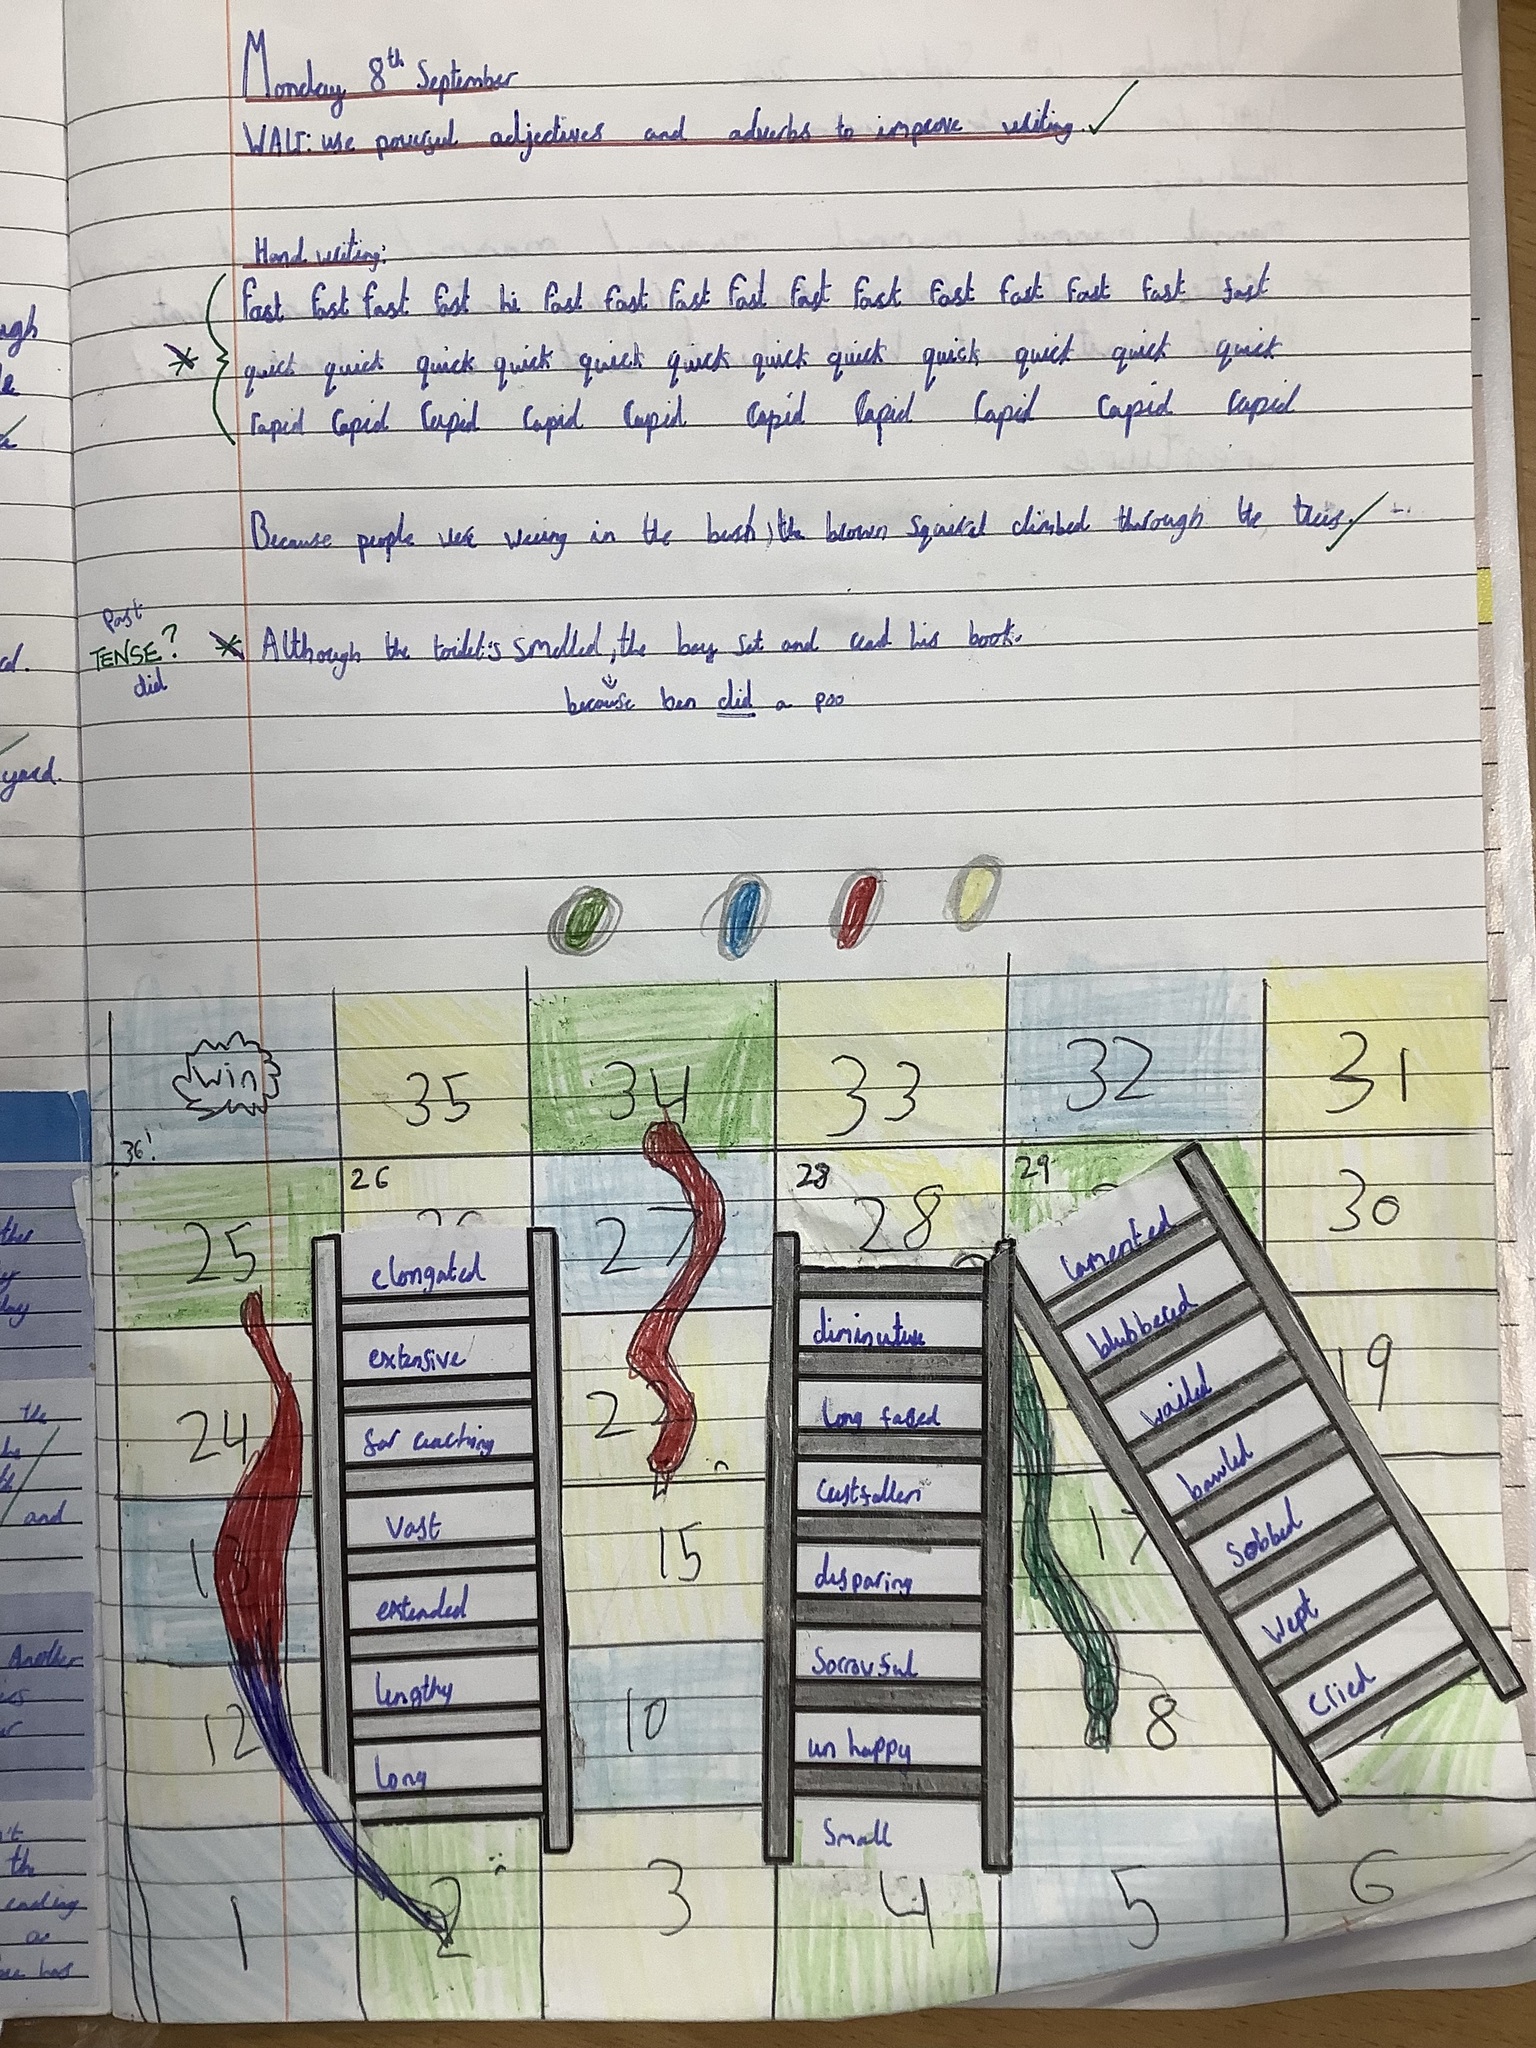 Monday 8th September
WALT: use powerful adjectives and adverbs to improve writing.
Hand writing:
fast fast fast fast hi fast fast fast fast fast fast fast fast fast fast fast
quick quick quick quick quick quick quick quick quick quick quick quick
rapid rapid rapid rapid rapid rapid rapid rapid rapid rapid
Because people were weeing in the bush, the brown squirel climbed through the
Past
TENSE?
did
Although the smelled, the boy sat and read his book.
because ben did a poo
win 35 34 33 32 31
36!
26 28 29
25 27 28 30
elongated
lamented
extensive
diminutive
blubbered
24 19
far reaching
long faced
wailed
vast
castfallen
bawled
13 15 17
extended
disparing
sobbed
lengthy
sorrowful
wept
12 10 8
long
un happy
cried
small
1 2 3 4 5 6
ugh
a
cal.
yard.
the
and
Another
the
ending
as
has